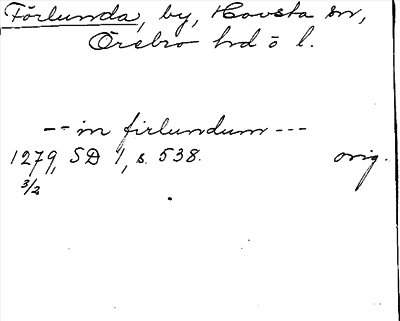 Förlunda, by, Hovsta sn,
Örebro hd ö l.
-- in firlundum ---
1279, SD 1, s. 538. orig.
3/2